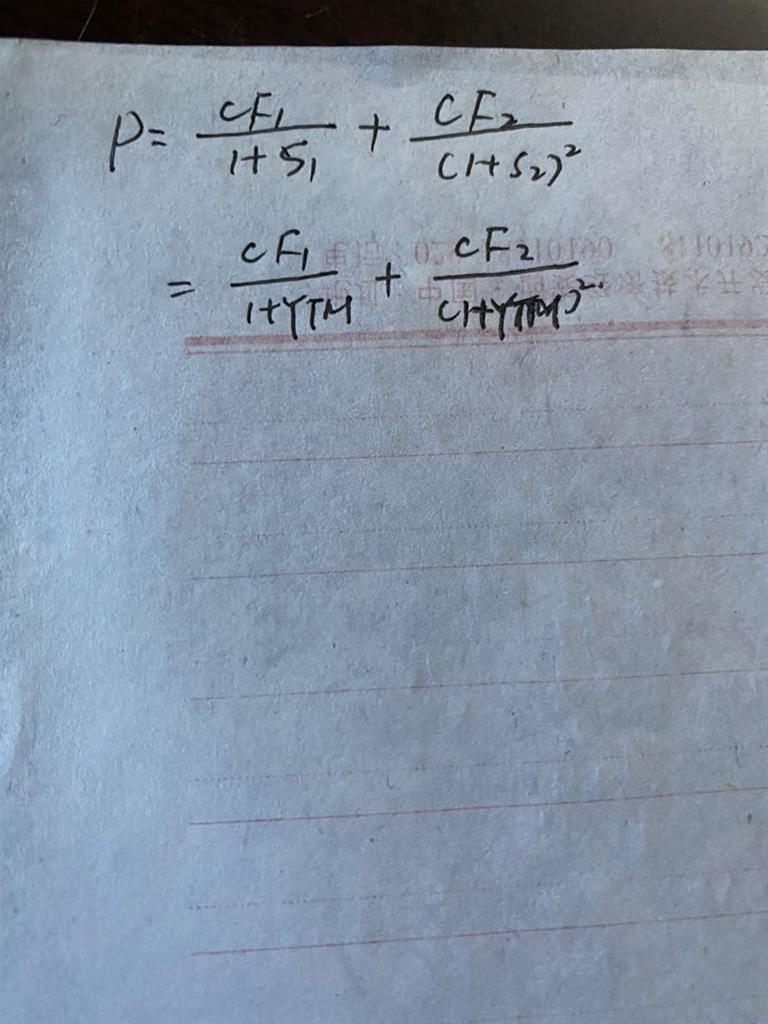 P = CF₁/(1+S₁) + CF₂/(1+S₂)²
= CF₁/(1+YTM) + CF₂/(1+YTM)²